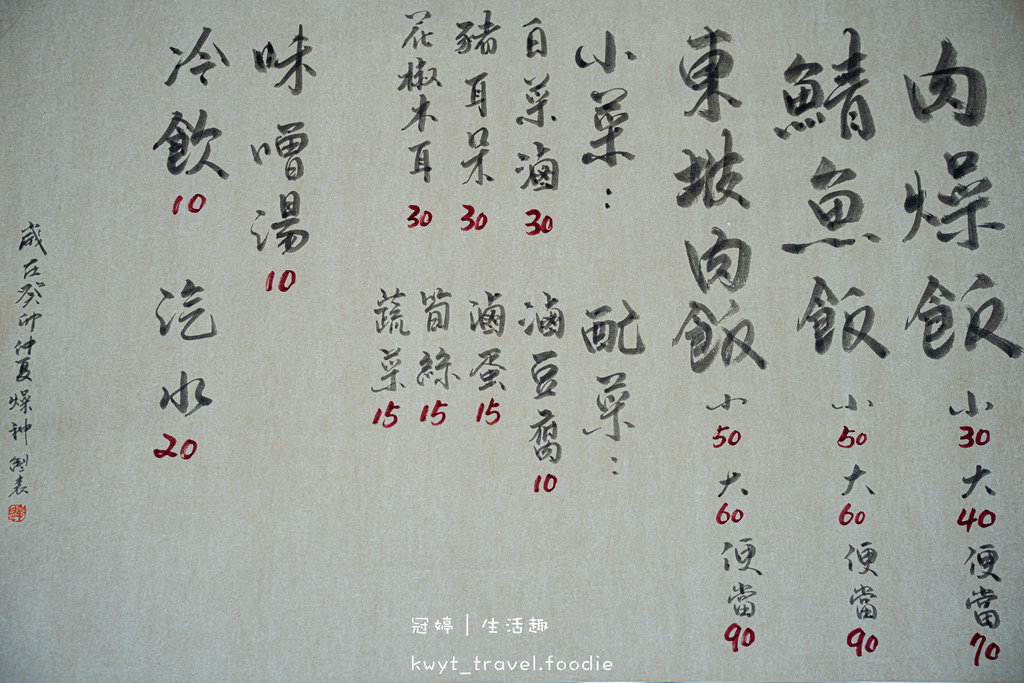 肉燥飯 小 30 大 40 便當 70
鯖魚飯 小 50 大 60 便當 90
東坡肉飯 小 50 大 60 便當 90
小菜：
白菜滷 30
豬耳朵 30
花椒木耳 30
配菜：
滷豆腐 10
滷蛋 15
筍絲 15
蔬菜 15
味噌湯 10
冷飲 10
汽水 20
歲在癸卯仲夏燥神製表
冠婷｜生活趣
kwyt_travel.foodie